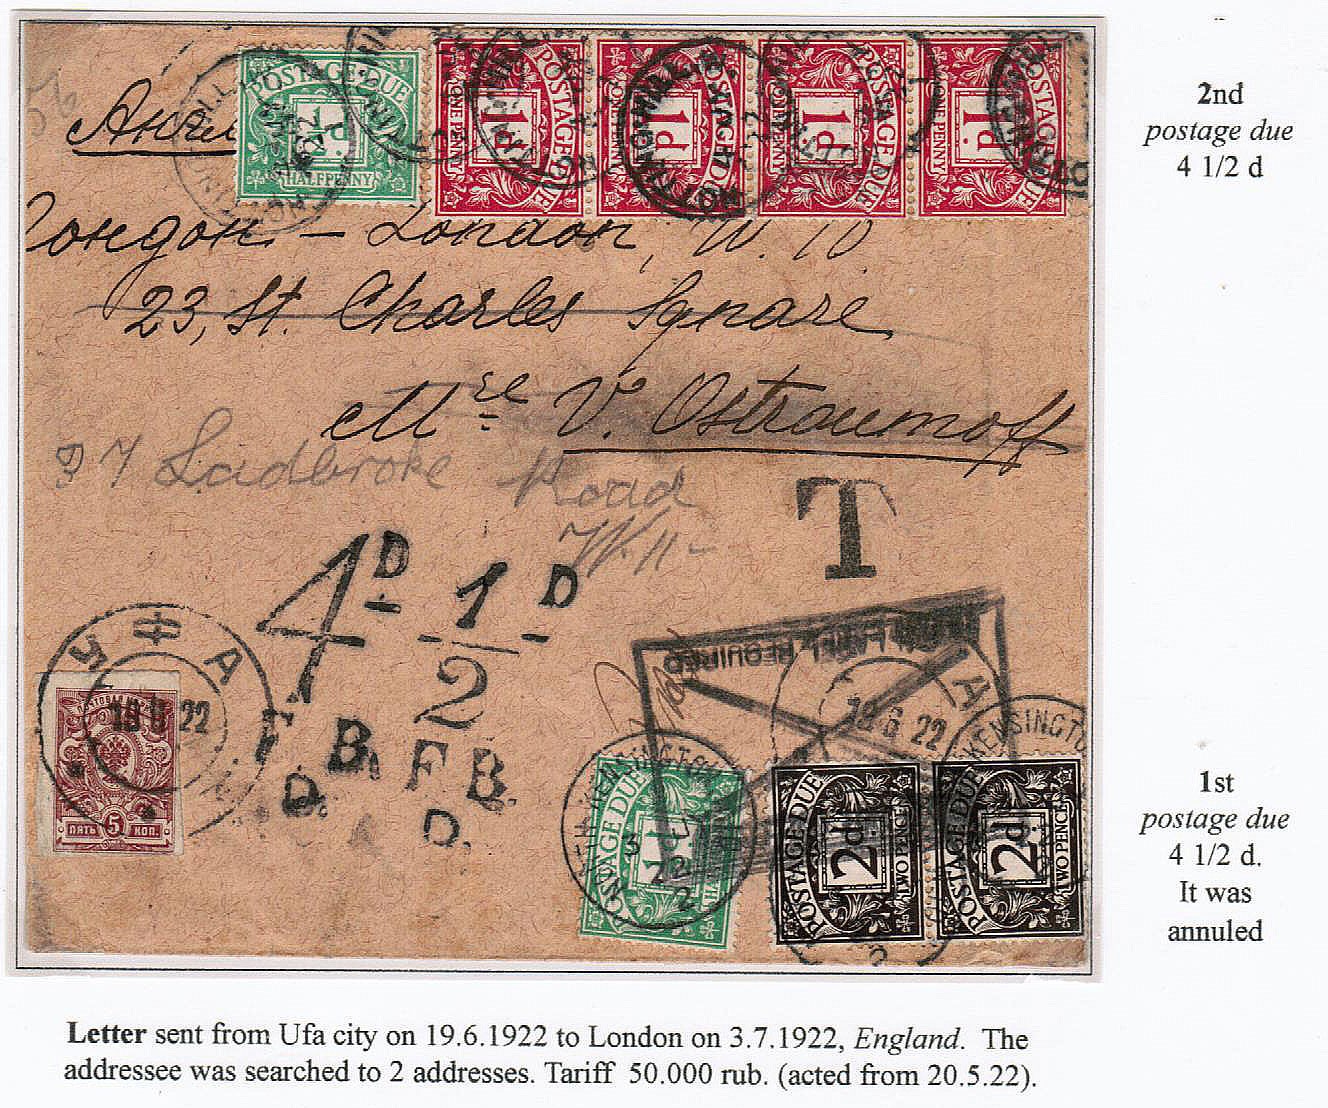 2nd
postage due
4 1/2 d
POSTAGE DUE
½d
HALFPENNY
POSTAGE DUE
1d
ONE PENNY
POSTAGE DUE
1d
ONE PENNY
POSTAGE DUE
1d
ONE PENNY
POSTAGE DUE
1d
ONE PENNY
NOTTING HILL
Лондон – London, W. 10
23, St. Charles Sqnare
Mre V. Ostraumoff
37 Ladbroke Road
W. 11 -
T
4D 1 D
2
B. F.B.
D. D.
УФА
19 6 22
ПОЧТОВАЯ МАРКА
5
ПЯТЬ КОП.
LABEL REQUIRED
А
19 6 22
NORTH KENSINGTON
3 JY
22
2
KENSINGTON
POSTAGE DUE
½d
POSTAGE DUE
2d.
TWO PENCE
POSTAGE DUE
2d.
TWO PENCE
1st
postage due
4 1/2 d.
It was
annuled
Letter sent from Ufa city on 19.6.1922 to London on 3.7.1922, England. The
addressee was searched to 2 addresses. Tariff 50.000 rub. (acted from 20.5.22).